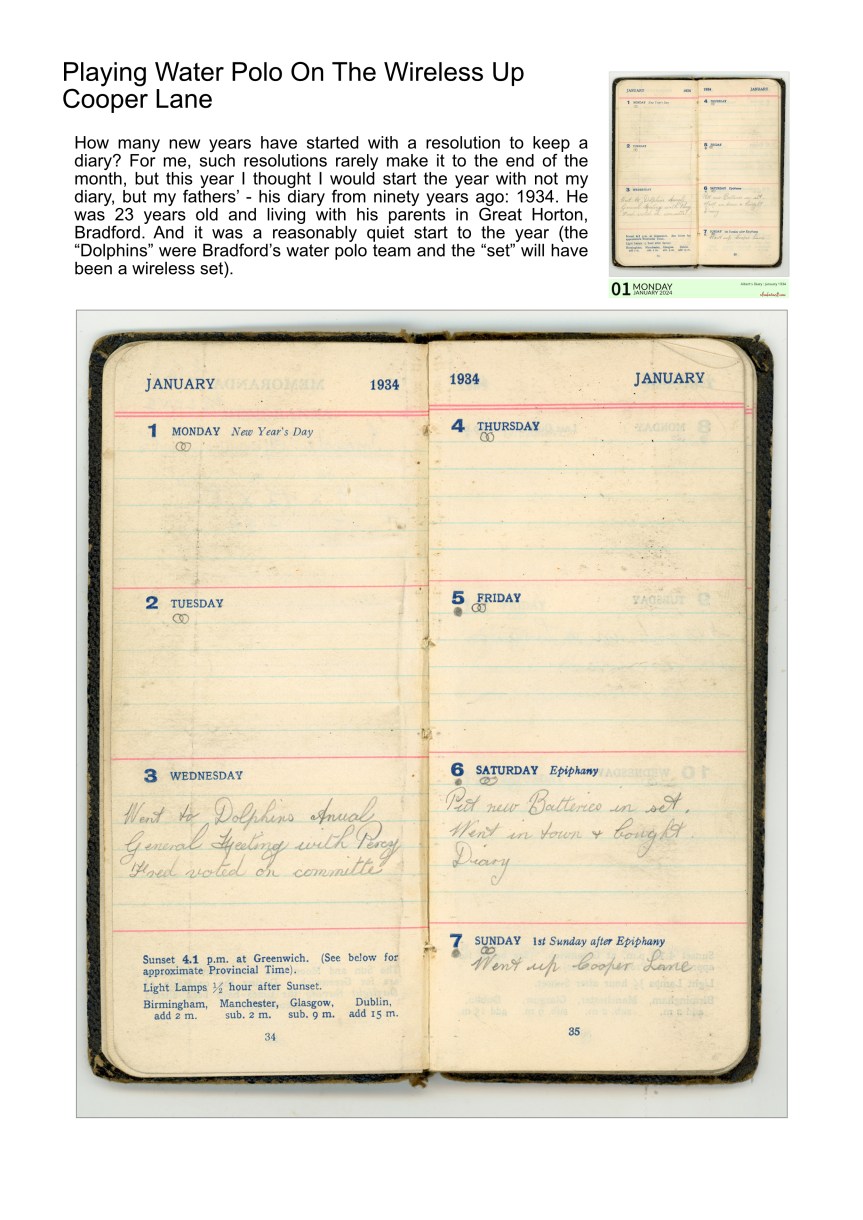 Playing Water Polo On The Wireless Up
Cooper Lane
How many new years have started with a resolution to keep a
diary? For me, such resolutions rarely make it to the end of the
month, but this year I thought I would start the year with not my
diary, but my fathers’ - his diary from ninety years ago: 1934. He
was 23 years old and living with his parents in Great Horton,
Bradford. And it was a reasonably quiet start to the year (the
“Dolphins” were Bradford’s water polo team and the “set” will have
been a wireless set).
01 MONDAY
JANUARY 2024
JANUARY 1934
1 MONDAY New Year's Day
2 TUESDAY
3 WEDNESDAY
Went to Dolphins Anual
General Meeting with Percy
Fred voted on committe
Sunset 4.1 p.m. at Greenwich. (See below for
approximate Provincial Time).
Light Lamps ½ hour after Sunset.
Birmingham, Manchester, Glasgow, Dublin,
add 2 m. sub. 2 m. sub. 9 m. add 15 m.
34
1934 JANUARY
4 THURSDAY
5 FRIDAY
6 SATURDAY Epiphany
Put new Batteries in set.
Went in town + bought
Diary
7 SUNDAY 1st Sunday after Epiphany
Went up Cooper Lane
35